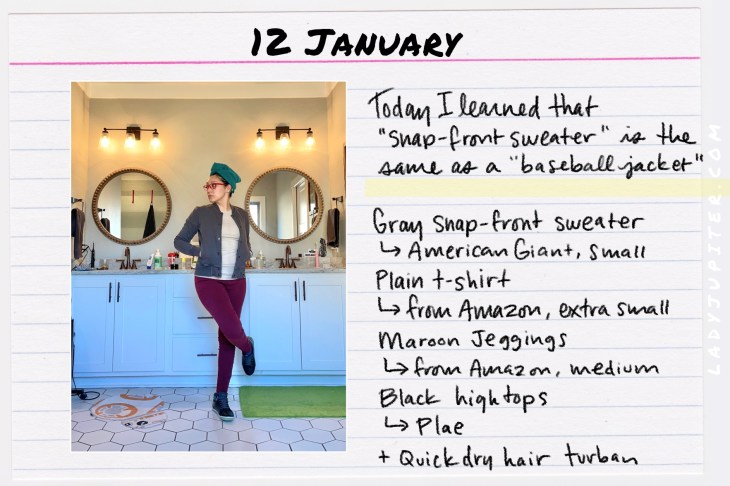 12 January
Today I learned that
"snap-front sweater" is the
same as a "baseball jacket"
Gray snap-front sweater
↳ American Giant, small
Plain t-shirt
↳ from Amazon, extra small
Maroon Jeggings
↳ from Amazon, medium
Black hightops
↳ Plae
+ Quickdry hair turban
LADYJUPITER.COM